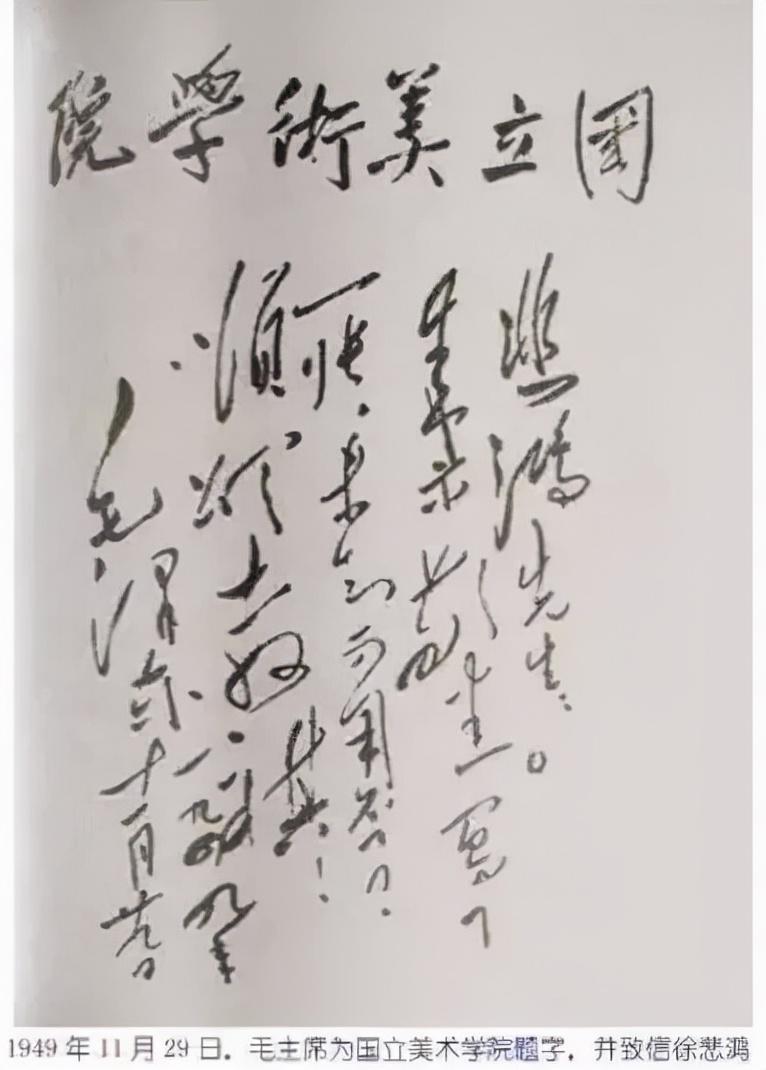 国立美術學院
悲鴻先生：
来示敬悉。写了
一張，未知可用否？
順頌
教祺！
毛澤东
一九四九年
十一月廿九日
1949 年 11 月 29 日，毛主席为国立美术学院题字，并致信徐悲鸿